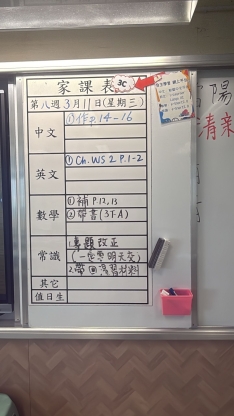 家課表 3C
第八週3月11日(星期三)
中文
①作p.14-16
英文
①Ch. WS 2 P.1-2
數學
①補 P.12,13
②帶書(3下A)
常識
1.專題改正
(一定要明天交)
2.帶回溫習材料
其它
值日生
陽
清新